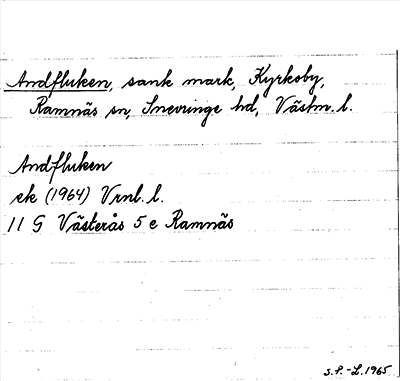 Andfluken, sank mark, Kyrkoby,
Ramnäs sn, Snevringe hd, Västm. l.
Andfluken
ek (1964) Vrml. l.
11 G Västerås 5 e Ramnäs
S.P.-L. 1965